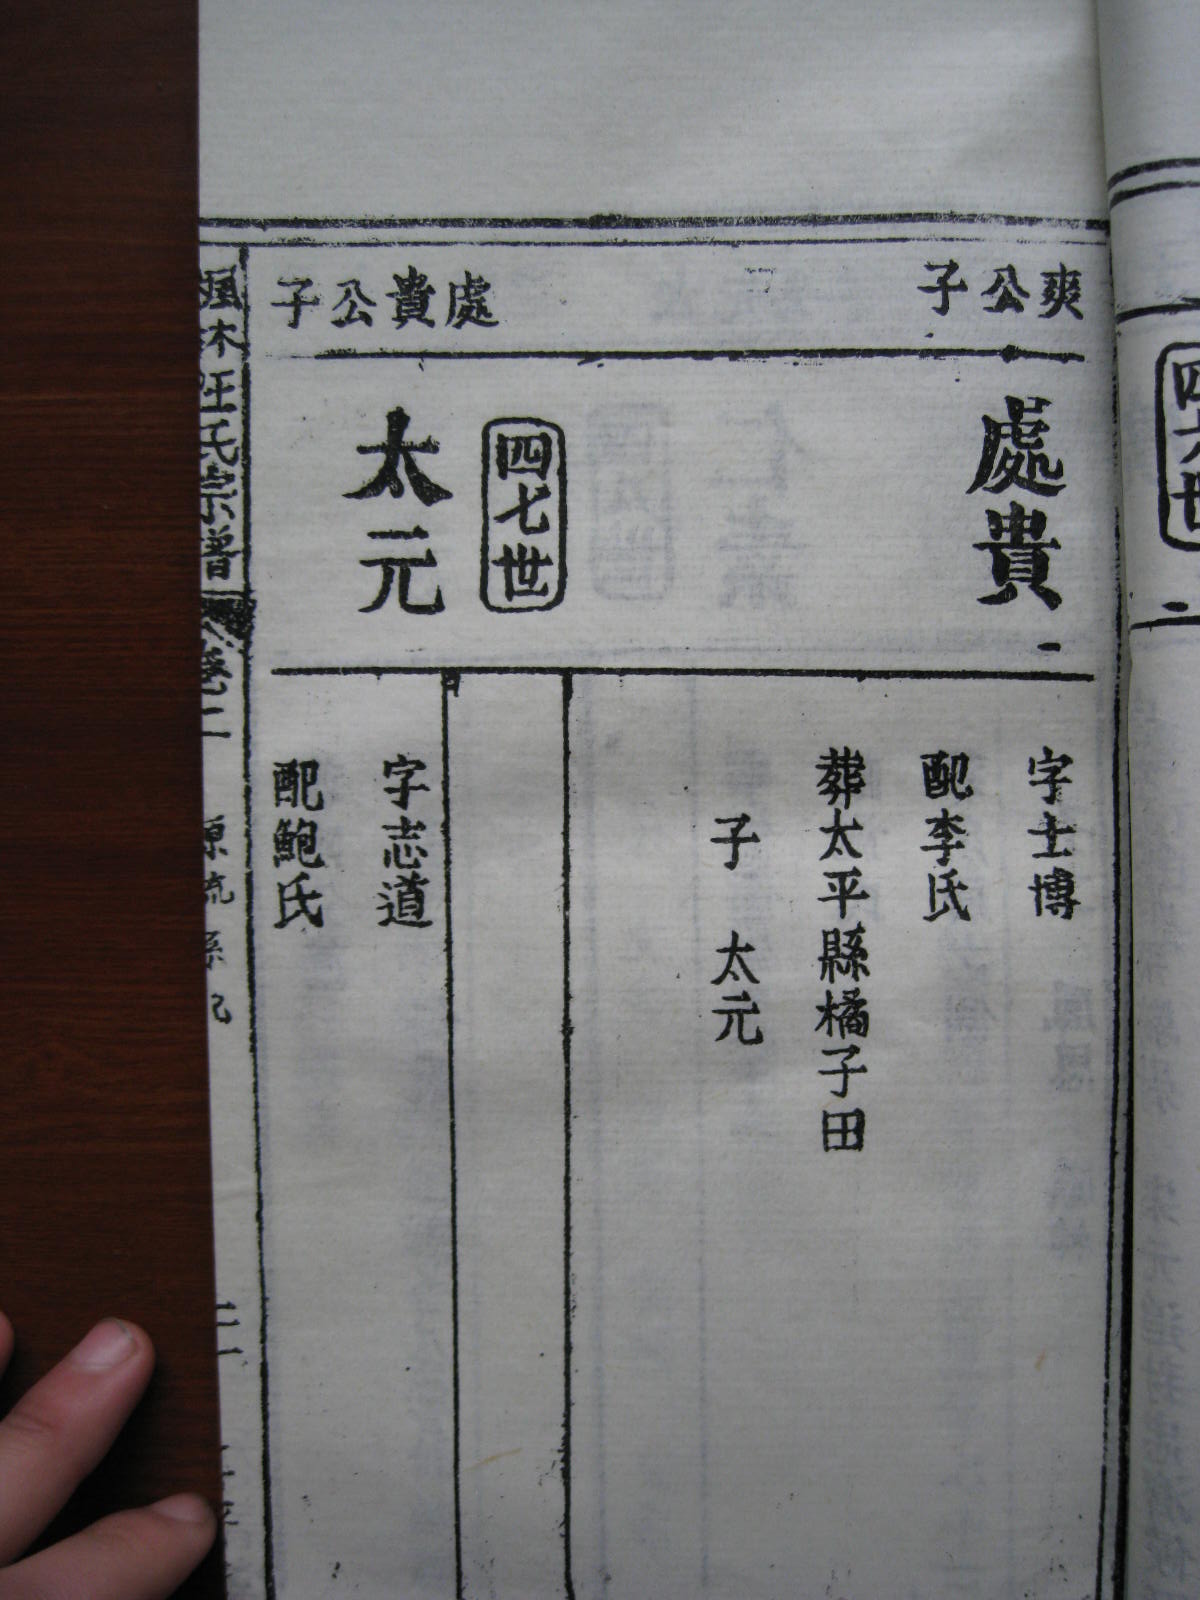 四六世
爽公子
處貴
字士博
配李氏
葬太平縣橘子田
子 太元
四七世
處貴公子
太元
字志道
配鮑氏
木汪氏宗譜
卷二
源流系